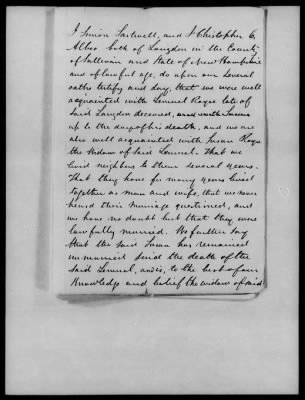 I Simon Sartwell, and I Christopher C.
Allbo both of Langdon in the County
of Sullivan and State of New Hampshire
and of lawful age, do upon our several
oaths testify and say, that we were well
acquainted with Lemuel Royce late of
said Langdon deceased,
up to the day of his death, and we are
also well acquainted with Susan Royce
the widow of said Lemuel. That we
lived neighbors to them several years.
That they have for many years lived
together as man and wife, that we never
heard their marriage questioned, and
we have no doubt but that they were
lawfully married. We further say
that the said Susan has remained
unmarried since the death of the
said Lemuel, and is, to the best of our
Knowledge and belief the widow of said